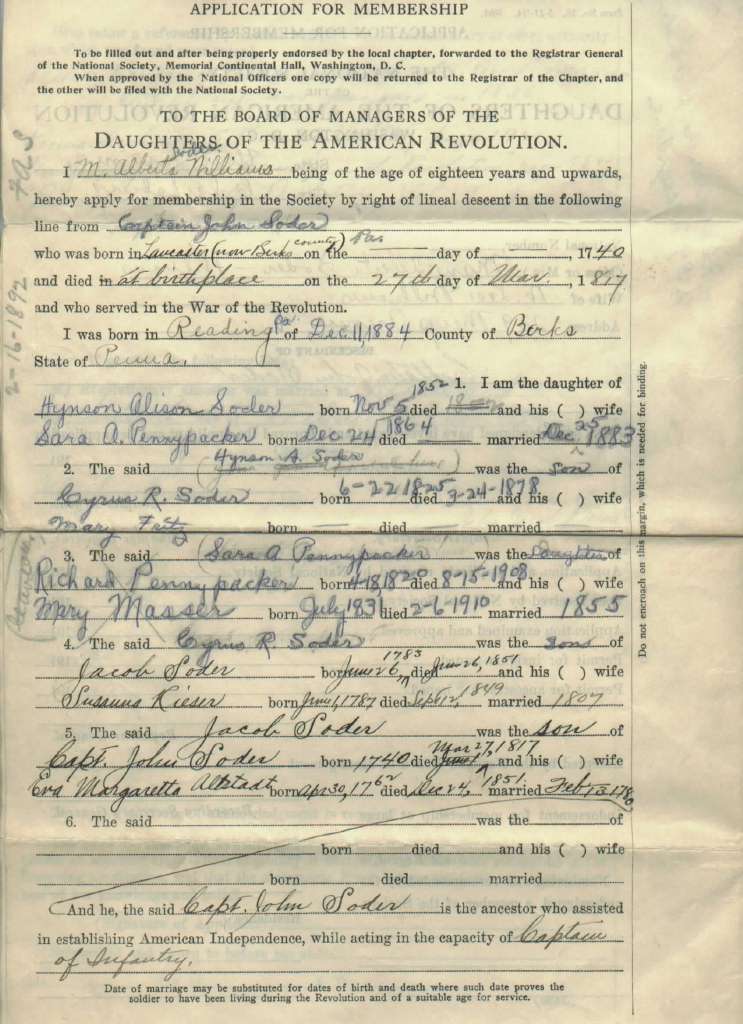 APPLICATION FOR MEMBERSHIP
To be filled out and after being properly endorsed by the local chapter, forwarded to the Registrar General
of the National Society, Memorial Continental Hall, Washington, D. C.
When approved by the National Officers one copy will be returned to the Registrar of the Chapter, and
the other will be filed with the National Society.
TO THE BOARD OF MANAGERS OF THE
DAUGHTERS OF THE AMERICAN REVOLUTION.
I M. Alberta Soder Williams being of the age of eighteen years and upwards,
hereby apply for membership in the Society by right of lineal descent in the following
line from Captain John Soder
who was born in Lancaster (now Berks county) Pa. on the day of , 1740
and died in at birthplace on the 27th day of Mar. , 1817
and who served in the War of the Revolution.
I was born in Reading Pa. of Dec. 11, 1884 County of Berks
State of Penna.
1. I am the daughter of
Hynson Alison Soder born Nov 5 1852 died and his ( ) wife
Sara A. Pennypacker born Dec 24 1864 died married Dec 25 1883
2. The said Hynson A. Soder was the son of
Cyrus R. Soder born 6-22 1825 died 3-24-1878 and his ( ) wife
Mary Fritz born died married
3. The said (Sara A Pennypacker) was the Daughter of
Richard Pennypacker born 4-18 1820 died 8-15-1908 and his ( ) wife
Mary Masser born July 1831 died 2-6-1910 married 1855
4. The said Cyrus R. Soder was the sons of
Jacob Soder born June 26, 1783 died June 26, 1851 and his ( ) wife
Susanna Kieser born June 1, 1787 died Sept 12, 1849 married 1807
5. The said Jacob Soder was the son of
Capt. John Soder born 1740 died Mar 27, 1817 and his ( ) wife
Eva Margaretta Altstadt born Apr 30, 1762 died Dec 24, 1851 married Feb 13 1780
6. The said was the of
born died and his ( ) wife
born died married
And he, the said Capt. John Soder is the ancestor who assisted
in establishing American Independence, while acting in the capacity of Captain
of Infantry.
Date of marriage may be substituted for dates of birth and death where such date proves the
soldier to have been living during the Revolution and of a suitable age for service.
Do not encroach on this margin, which is needed for binding.
2-16-1892